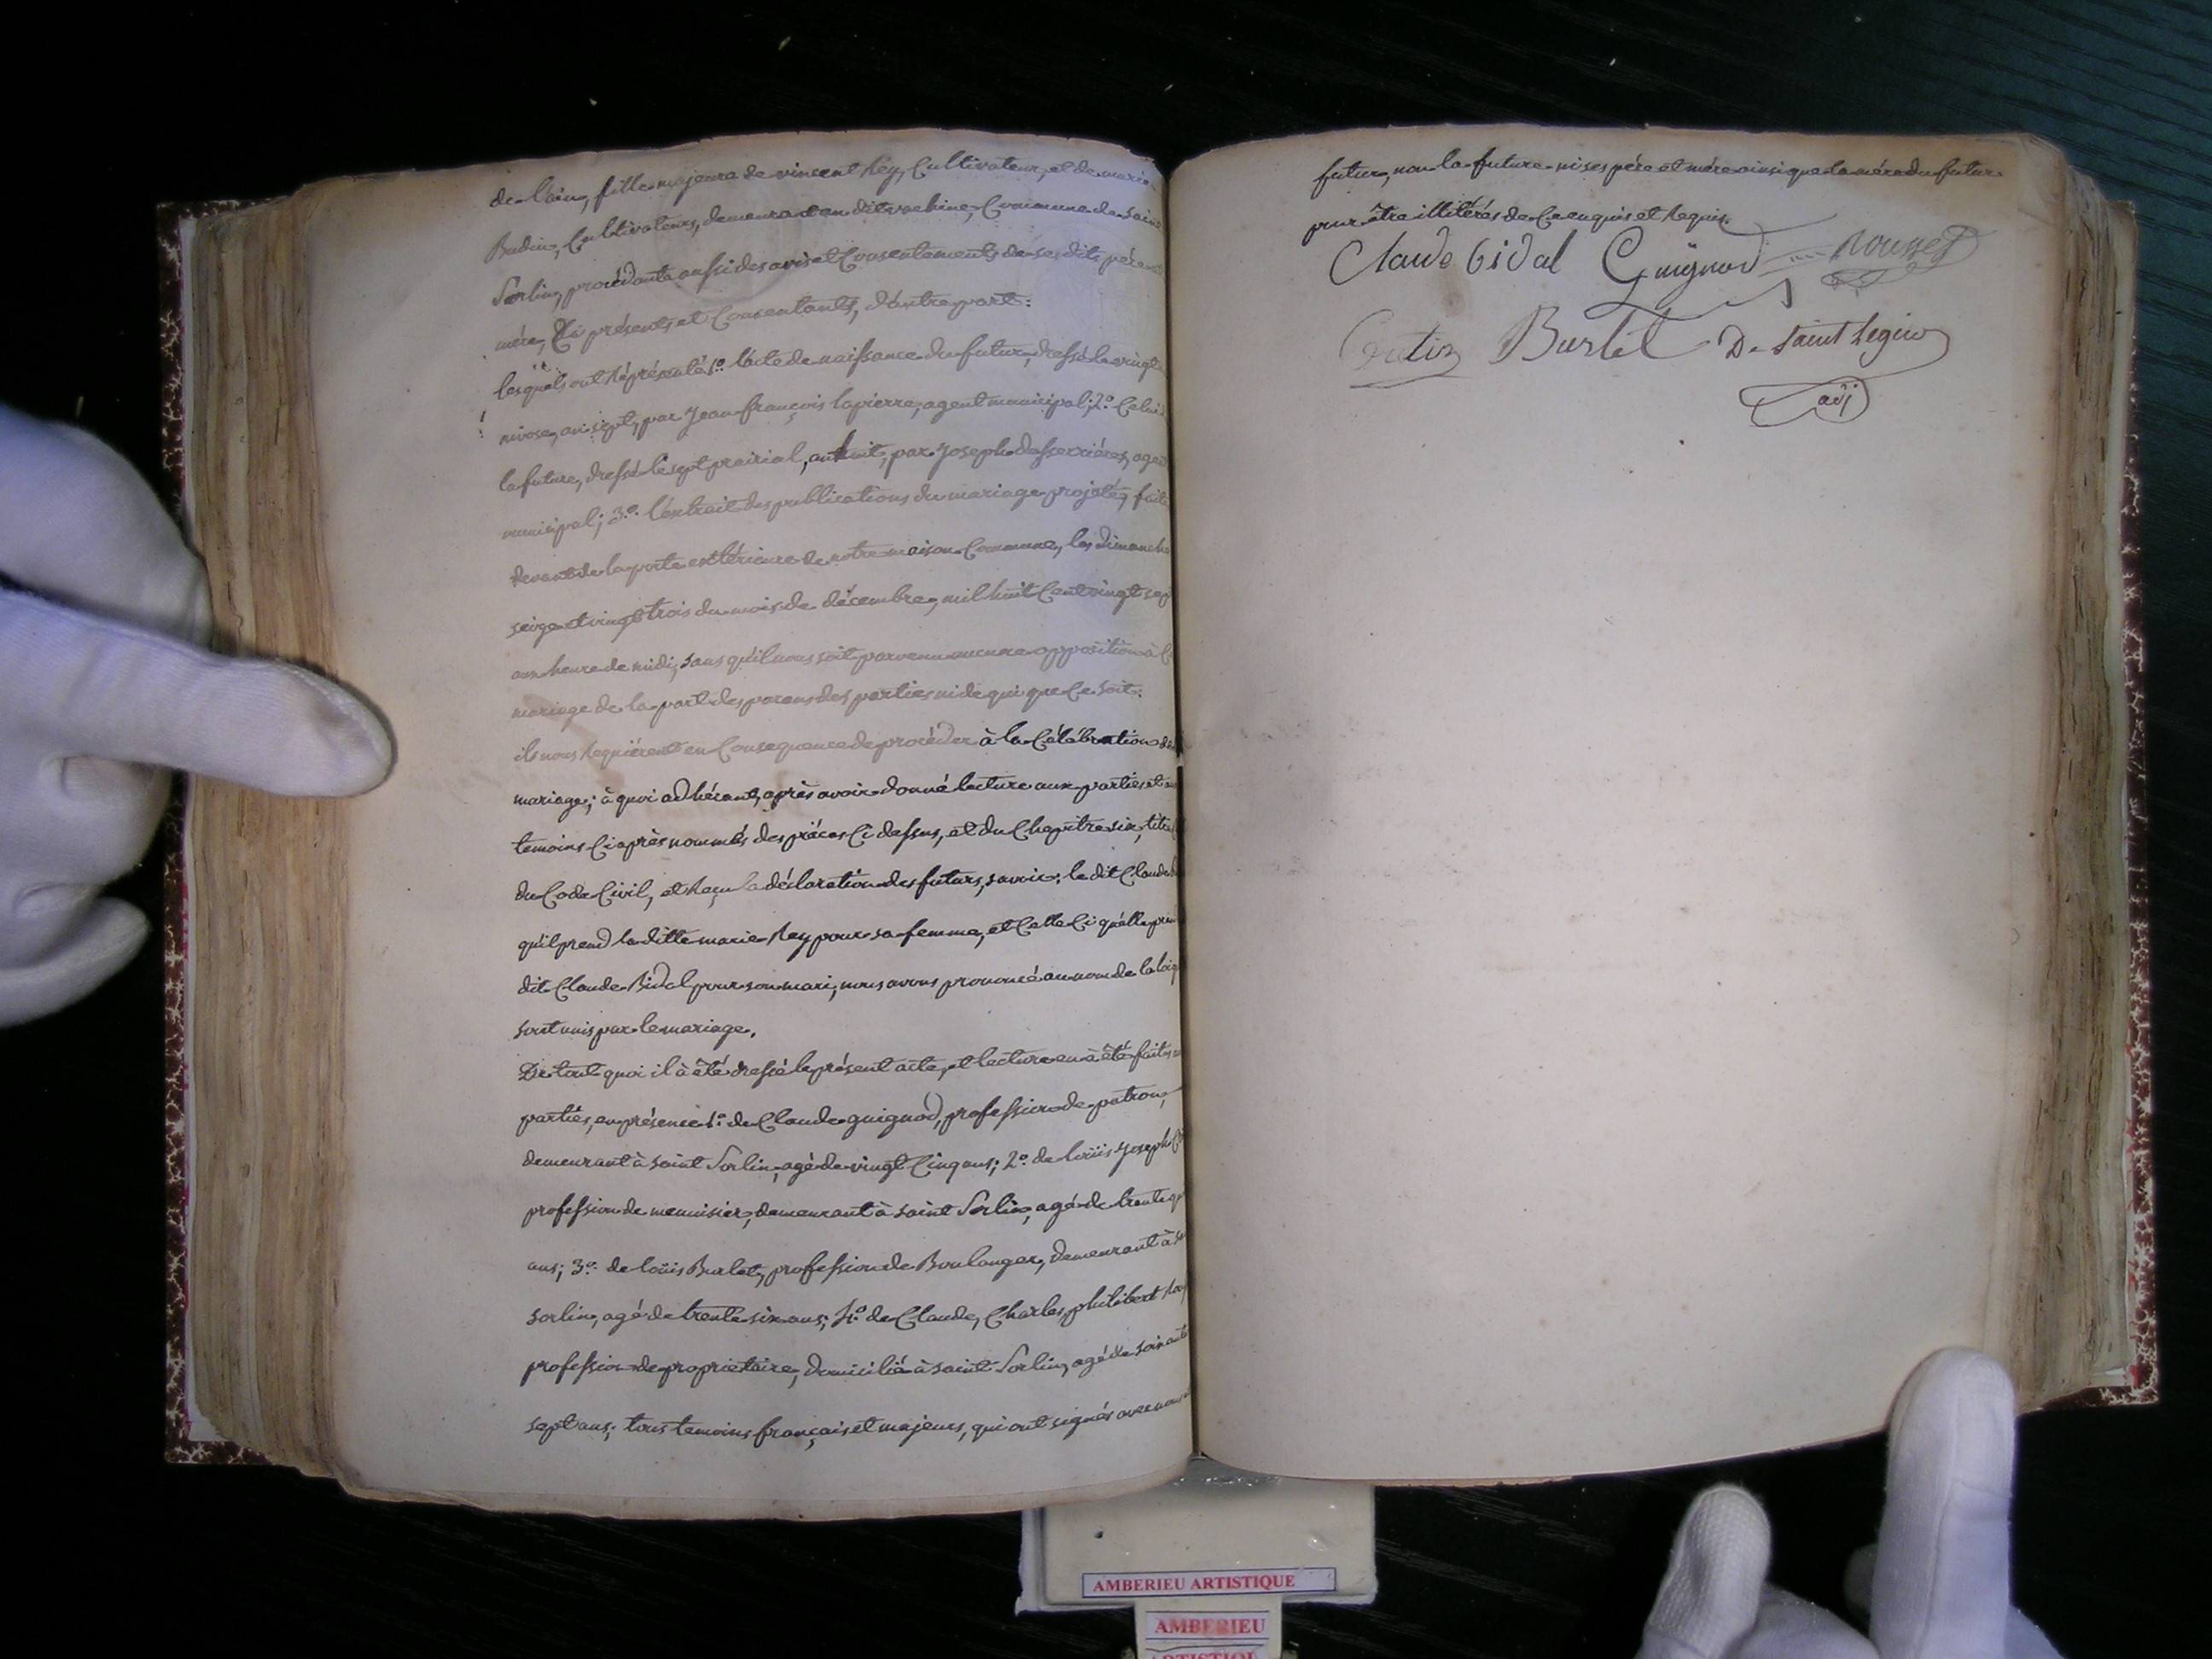 de l'ain, fille majeure de vincent Rey, Cultivateur, et de marie
Budin, Cultivateurs, demeurant au dit vachine, Commune de Saint
Sorlin, procédante aussi des avis et Consentements de ses dits père et
mère, Ici présents et Consentants, d'autre part:
lesquels ont Réprésenté 1º l'acte de naissance du futur, dressé le vingt
nivose, an sept, par Jean françois lapierre, agent municipal; 2º. Celui
la future, dressé le sept prairial, an huit, par Joseph Desserrières, agent
municipal; 3º. l'extrait des publications du mariage projetté, faites
devant de la porte extérieure de notre maison Commune, les dimanche
seize et vingt trois du mois de décembre, mil huit Cent vingt sept
aux heure de midi, sans qu'il nous soit parvenu aucune opposition à C
mariage de la part des parens des parties ni de qui que Ce soit:
ils nous Requièrent en Consequence de procéder à la Célébration
mariage; à quoi adhérant, après avoir donné lecture aux parties et
temoins Ci après nommés des pièces Ci dessus, et du Chapitre six, titre
du Code Civil, et Reçu la déclaration des futurs, savoir: le dit Claude
qu'il prend la ditte marie Rey pour sa femme, et Celle Ci qu'elle prend
dit Claude Bidal pour son mari, nous avons prononcé au nom de la loi
sont unis par le mariage.
De tout quoi il à été dressé le présent acte, et lecture en à été faite
parties, en présence 1º. de Claude guignod, profession de patron,
demeurant à saint Sorlin, agé de vingt Cinq ans; 2º. de loüis Joseph
profession de menuisier, demeurant à saint Sorlin, agé de trente
ans; 3º. de loüis Burlet, profession de Boulanger, demeurant à
sorlin, agé de trente six ans; 4º. de Claude, Charles, philibert
profession de proprietaire, domicilié à saint Sorlin, agé de soixante
sept ans; tous temoins français et majeurs, qui ont signés avec nous
futur, non la future ni ses père et mère ainsi que la mère du futur
pour être illitérés de Ce enquis et Requis.
Claude bidal Guignod Rousset
Burlet De Saint Legier
adj
AMBERIEU ARTISTIQUE
AMBERIEU
ARTISTIQUE